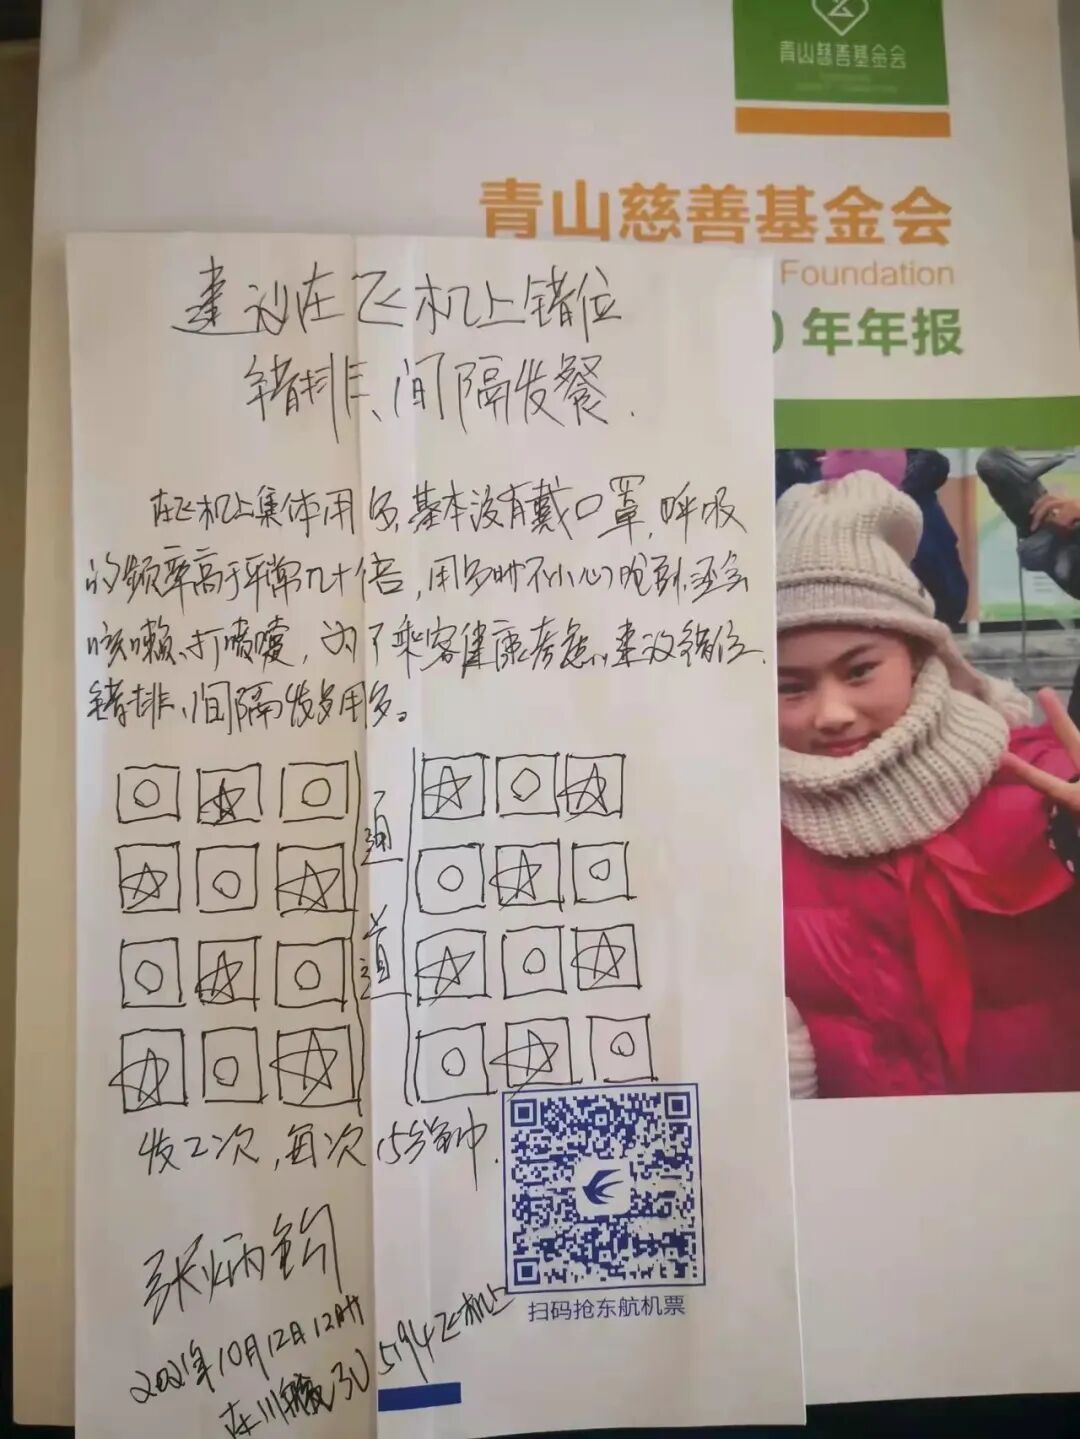 青山慈善基金会
青山慈善基金会
Foundation
0年年报
建议在飞机上错位
错排、间隔发餐.
在飞机上集体用多,基本没有戴口罩,呼吸
的频率高于平常几十倍,用多时不小心呛到还会
咳嗽、打喷嚏,为了乘客健康考虑,建议错位、
错排、间隔发多用多。
通道
发2次,每次15分钟.
张炳钧
2021年10月12日12时
在川航3U5194飞机上
扫码抢东航机票